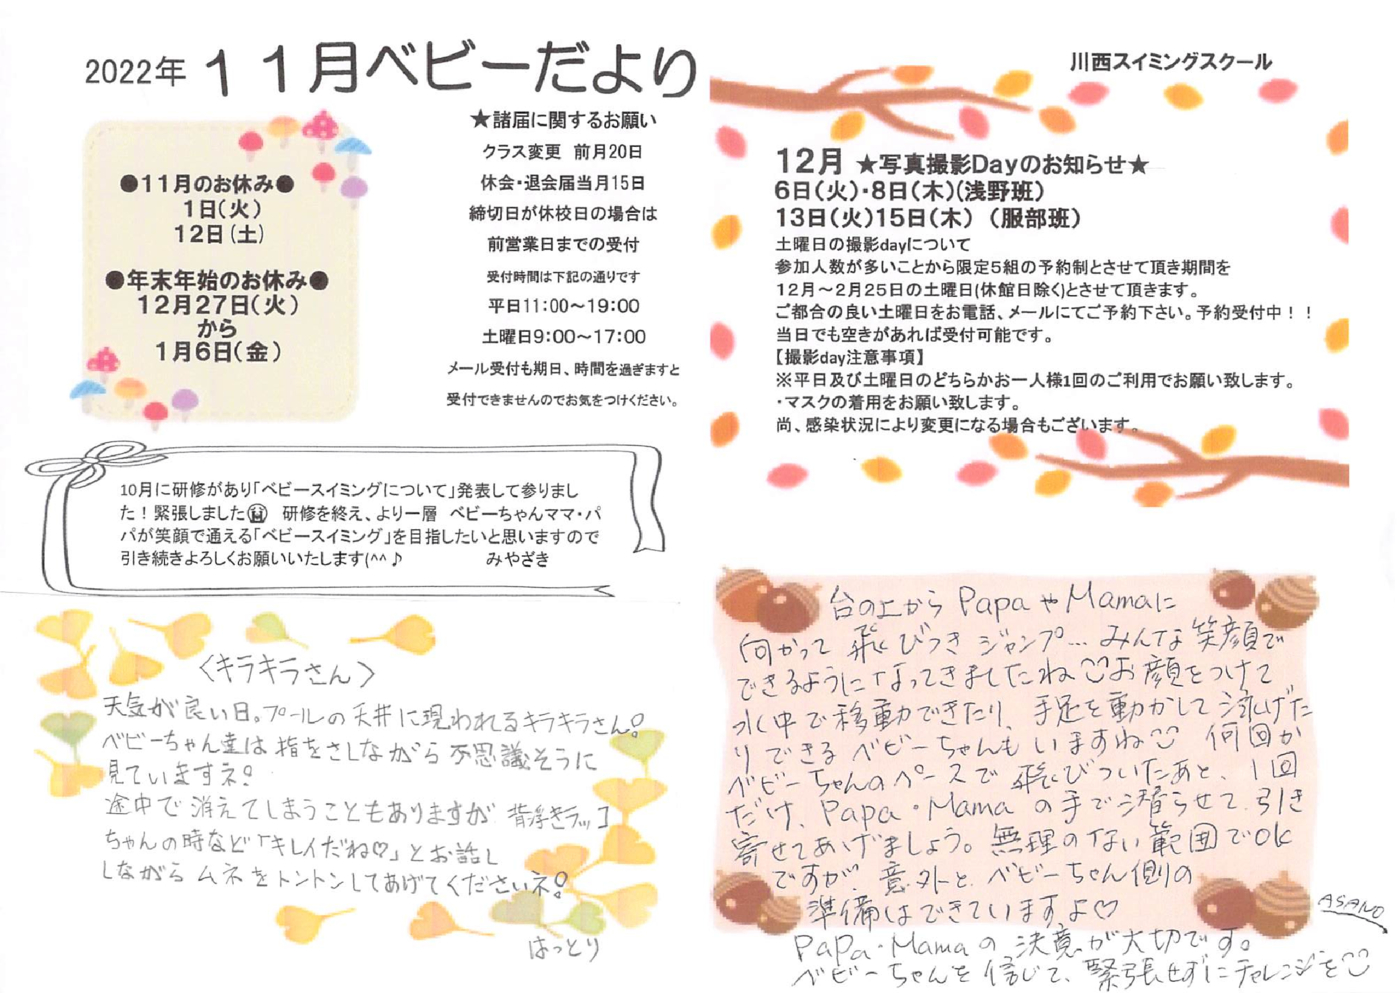 2022年 11月ベビーだより
川西スイミングスクール
●11月のお休み●
1日(火)
12日(土)
●年末年始のお休み●
12月27日(火)
から
1月6日(金)
★諸届に関するお願い
クラス変更 前月20日
休会・退会届当月15日
締切日が休校日の場合は
前営業日までの受付
受付時間は下記の通りです
平日11:00～19:00
土曜日9:00～17:00
メール受付も期日、時間を過ぎますと
受付できませんのでお気をつけください。
12月 ★写真撮影Dayのお知らせ★
6日(火)・8日(木)(浅野班)
13日(火)15日(木) (服部班)
土曜日の撮影dayについて
参加人数が多いことから限定5組の予約制とさせて頂き期間を
12月～2月25日の土曜日(休館日除く)とさせて頂きます。
ご都合の良い土曜日をお電話、メールにてご予約下さい。予約受付中！！
当日でも空きがあれば受付可能です。
【撮影day注意事項】
※平日及び土曜日のどちらかお一人様1回のご利用でお願い致します。
・マスクの着用をお願い致します。
尚、感染状況により変更になる場合もございます。
10月に研修があり「ベビースイミングについて」発表して参りまし
た！緊張しました 研修を終え、より一層 ベビーちゃんママ・パ
パが笑顔で通える「ベビースイミング」を目指したいと思いますので
引き続きよろしくお願いいたします(^^♪ みやざき
〈キラキラさん〉
天気が良い日。プールの天井に現われるキラキラさん!
ベビーちゃん達は指をさしながら不思議そうに
見ていますネ!
途中で消えてしまうこともありますが 背浮きラッコ
ちゃんの時など「キレイだね♡」とお話し
しながらムネをトントンしてあげてくださいネ!
はっとり
台の上からPapaやMamaに
向かって飛びつきジャンプ…みんな笑顔で
できるようになってきましたね☺お顔をつけて
水中で移動できたり、手足を動かして泳げた
りできるベビーちゃんもいますね☺ 何回か
ベビーちゃんのペースで飛びついたあと、1回
だけ、Papa・Mamaの手で潜らせて引き
寄せてあげましょう。無理のない範囲でOK
ですが 意外と、ベビーちゃん側の
準備はできていますよ♡
PaPa・Mamaの決意が大切です。
ベビーちゃんを信じて、緊張せずにチャレンジを☺
ASANO